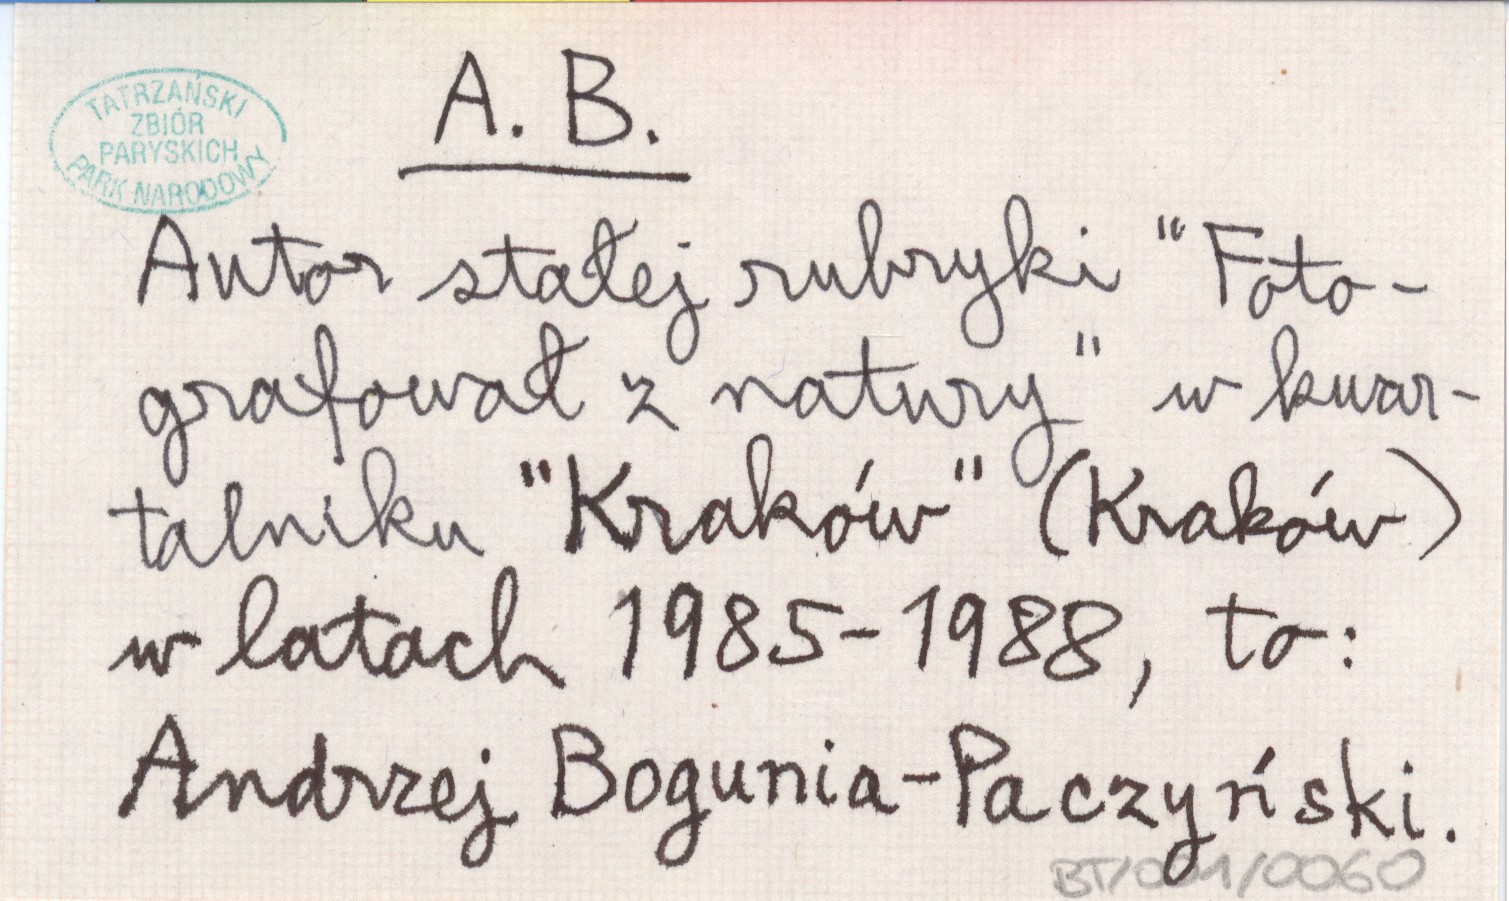 TATRZAŃSKI
ZBIÓR
PARYSKICH
PARK NARODOWY
A. B.
Autor stałej rubryki "Foto-
grafował z natury" w kwar-
talniku "Kraków" (Kraków)
w latach 1985-1988, to:
Andrzej Bogunia-Paczyński.
BT/001/0060